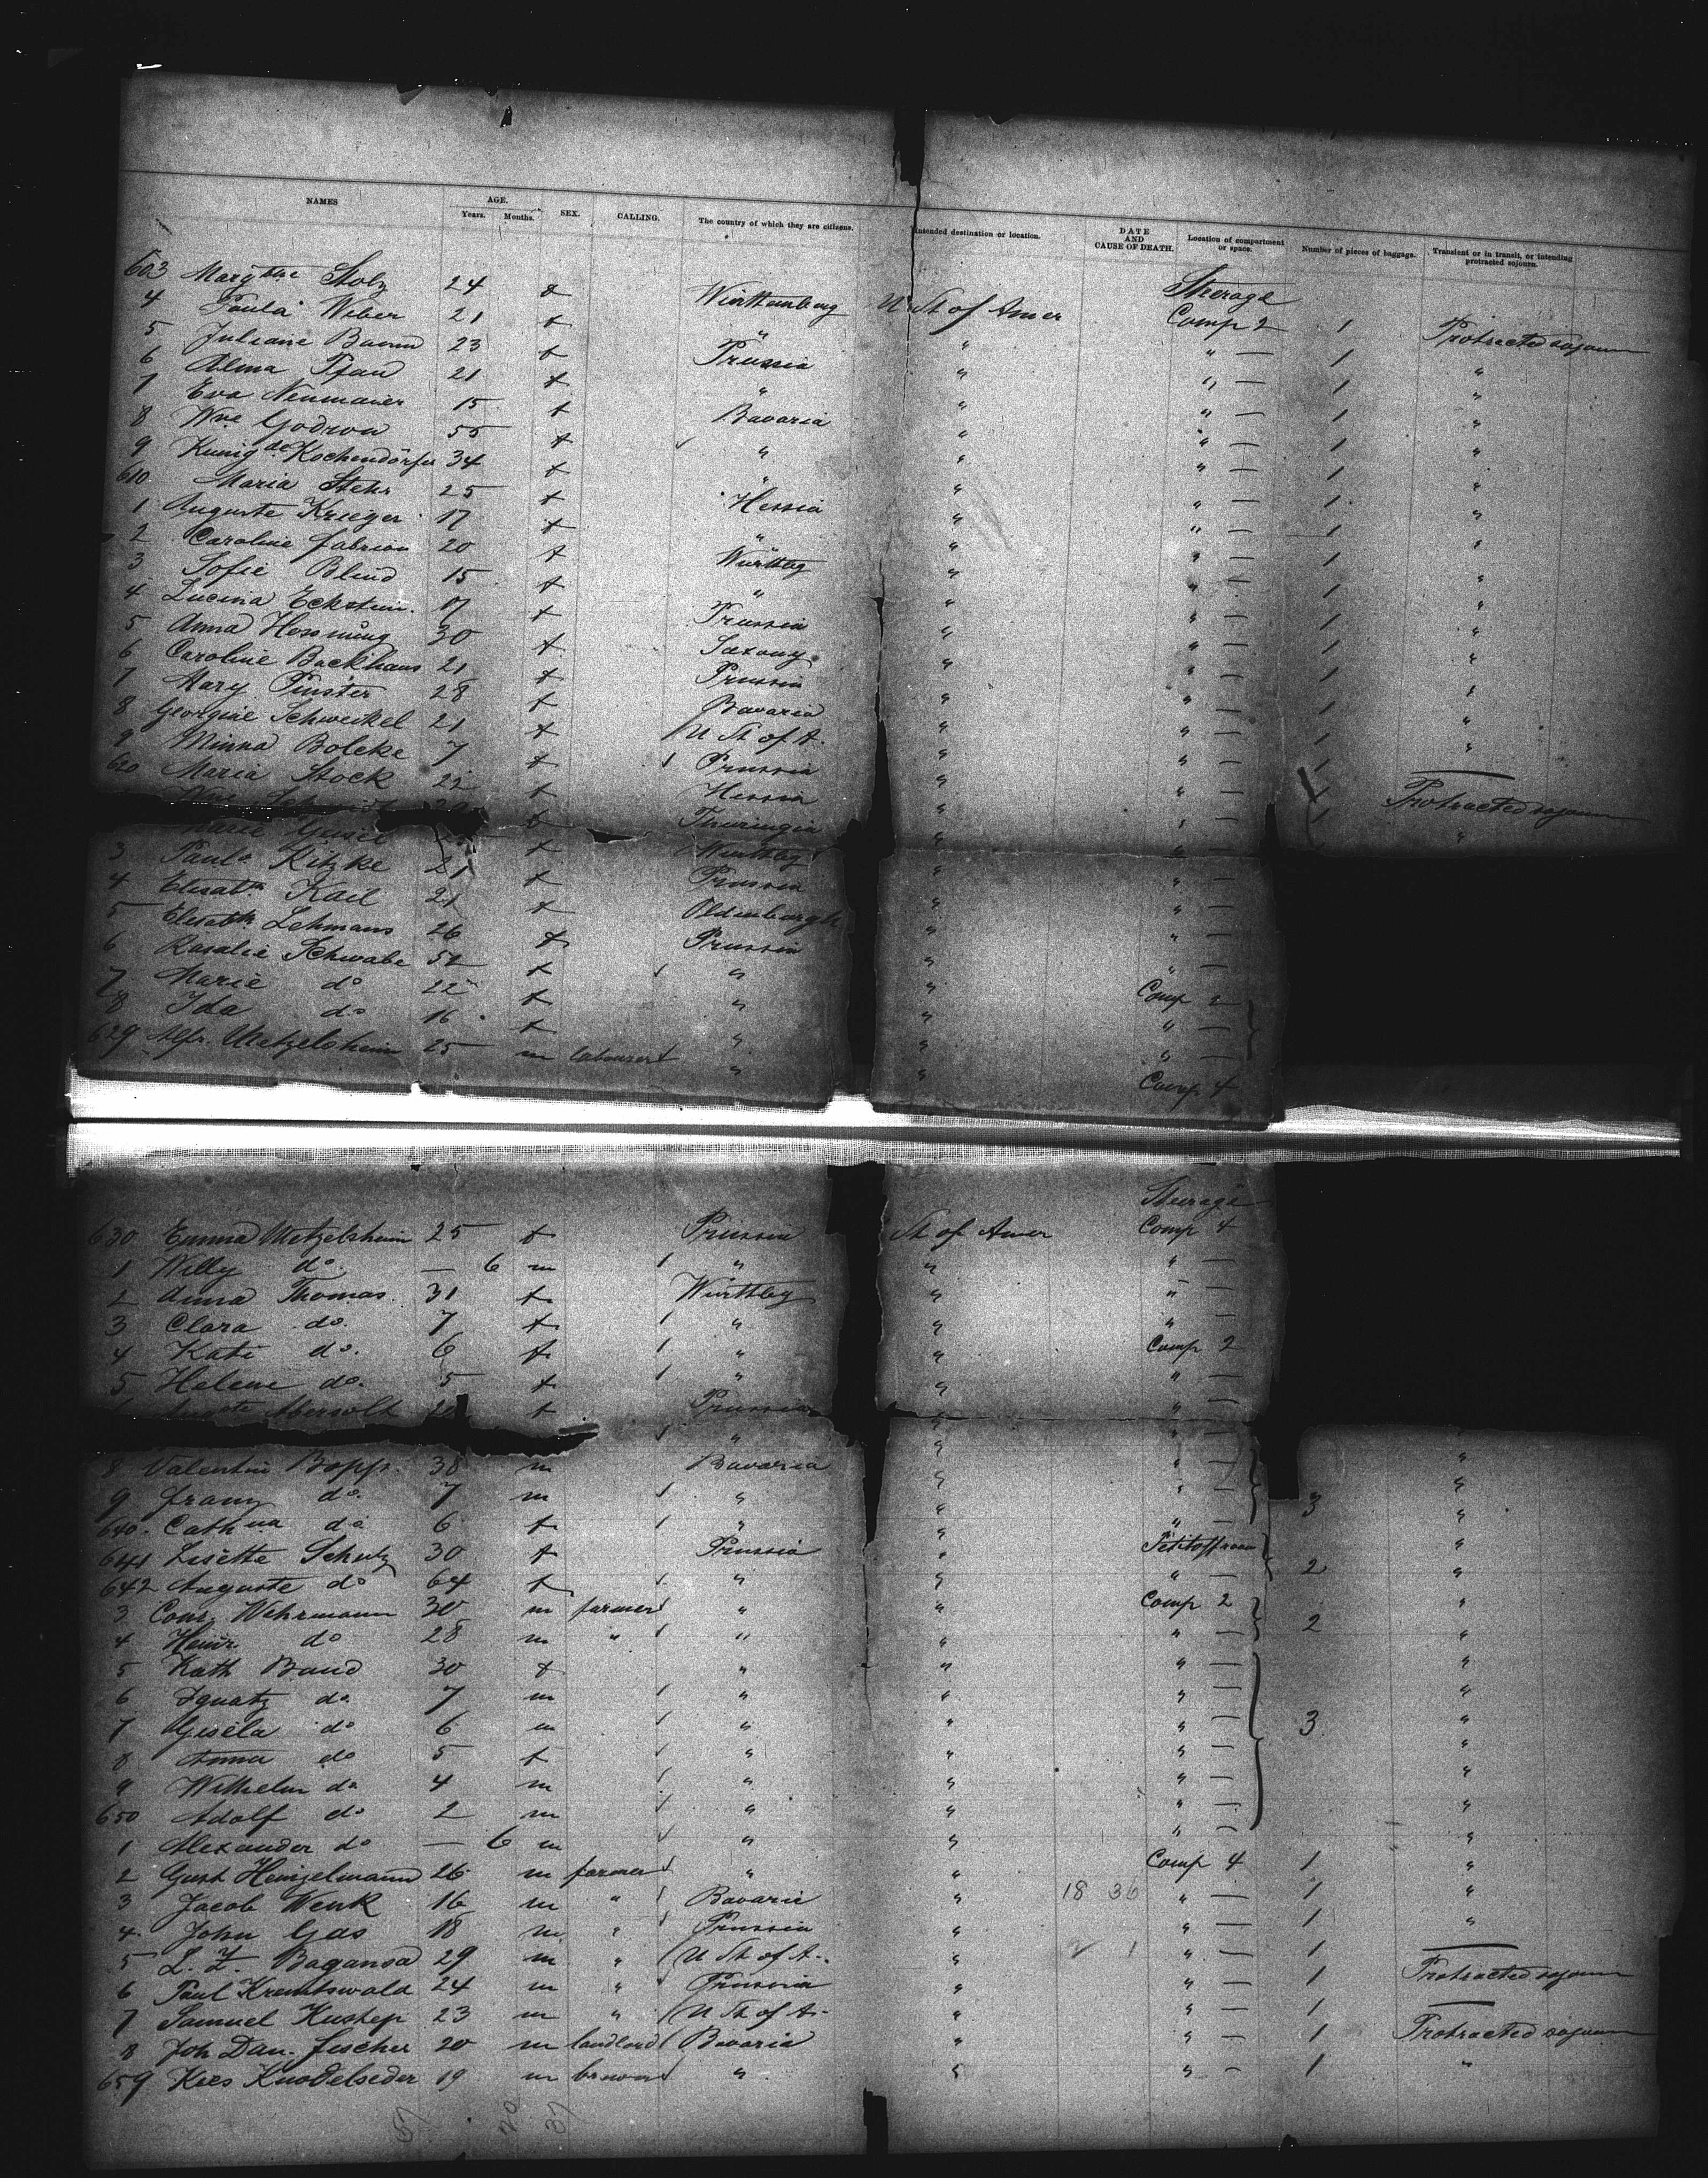 NAMES AGE. Years. Months. SEX. CALLING. The country of which they are citizens. Intended destination or location. DATE AND CAUSE OF DEATH. Location of compartment or space. Number of pieces of baggage. Transient or in transit, or intending protracted sojourn.
Steerage
603 Margthe Stolz 24 f Württemberg U St of Amer Comp 2 1 Protracted sojourn
4 Paula Weber 21 f " " " — 1 "
5 Juliane Baum 23 f Prussia " " — 1 "
6 Alma Pfau 21 f " " " — 1 "
7 Eva Neumaier 15 f Bavaria " " — 1 "
8 Wne Godron 55 f " " " — 1 "
9 Kunigde Kochendörfer 34 f " " " — 1 "
610 Maria Stehr 25 f Hessia " " — 1 "
1 Auguste Krieger 17 f " " " — 1 "
2 Caroline Fabrion 20 f Württbg " " — 1 "
3 Sofie Blind 15 f " " " — 1 "
4 Lucina Eckstein 17 f Prussia " " — 1 "
5 Anna 30 f Saxony " " — 1 "
6 Caroline Backhaus 21 f Prussia " " — 1 "
7 Mary Finster 28 f Bavaria " " — 1 "
8 Georgine Schweikel 21 f U St of A. " " — 1 —
9 Minna Bolcke 7 f Prussia " " — 1 Protracted sojourn
620 Maria Stock 22 f Hessia " " — 1 "
f Thuringia " " —
Marie f Württbg " " —
3 Paula Kitzke 21 f Prussia " " —
4 Elisabth Kail 21 f Oldenburgh " " —
5 Elisabth Lehmans 26 f Prussia " " —
6 Rosalie Schwabe 52 f " " Comp 2
7 Marie do 22 f " " " —
8 Ida do 16 f " " " —
629 Alfr. Metzelsheim 25 m labourer " " Comp 4
Steerage
630 Emma Metzelsheim 25 f Prussia St of Amer Comp 4
1 Willy do. — 6 m " " " —
2 Anna Thomas 31 f Württbg " " —
3 Clara do. 7 f " " " —
4 Kati do. 6 f " " Comp 2
5 Helene do. 5 f " " " —
Abersold f Prussia " " —
" " " —
8 Valentin Bopp. 38 m Bavaria " " — "
9 Franz do. 7 m " " " — 3 "
640. Cathna do 6 f " " " — "
641 Lisette Schutz 30 f Prussia " 2 "
642 Auguste do 64 f " " " — "
3 Conr. Wehrmann 30 m farmer " " Comp 2 2 "
4 Heinr. do 28 m " " " " — "
5 Kath Baud 30 f " " " — "
6 Ignatz do. 7 m " " " — "
7 Gisela do 6 m " " " — 3 "
8 Anna do 5 f " " " — "
9 Wilhelm do 4 m " " " — "
650 Adolf do 2 m " " " — "
1 Alexander do — 6 m " " " — "
2 Gust Heinzelmann 26 m farmer " " Comp 4 1 "
3 Jacob Wenk 16 m " Bavaria " 18 36 " — 1 "
4 John Gas 18 m " Prussia " " — 1 "
5 L. Z. Bagansa 29 m " U St of A. " 2 1 " — 1 —
6 Paul Krantswald 24 m " Prussia " " — 1 Protracted sojourn
7 Samuel 23 m " U St of A. " " — 1 —
8 Joh Dan. Fischer 20 m landlord Bavaria " " — 1 Protracted sojourn
659 Knodelseder 19 m brewer " " " — 1 "
20 37